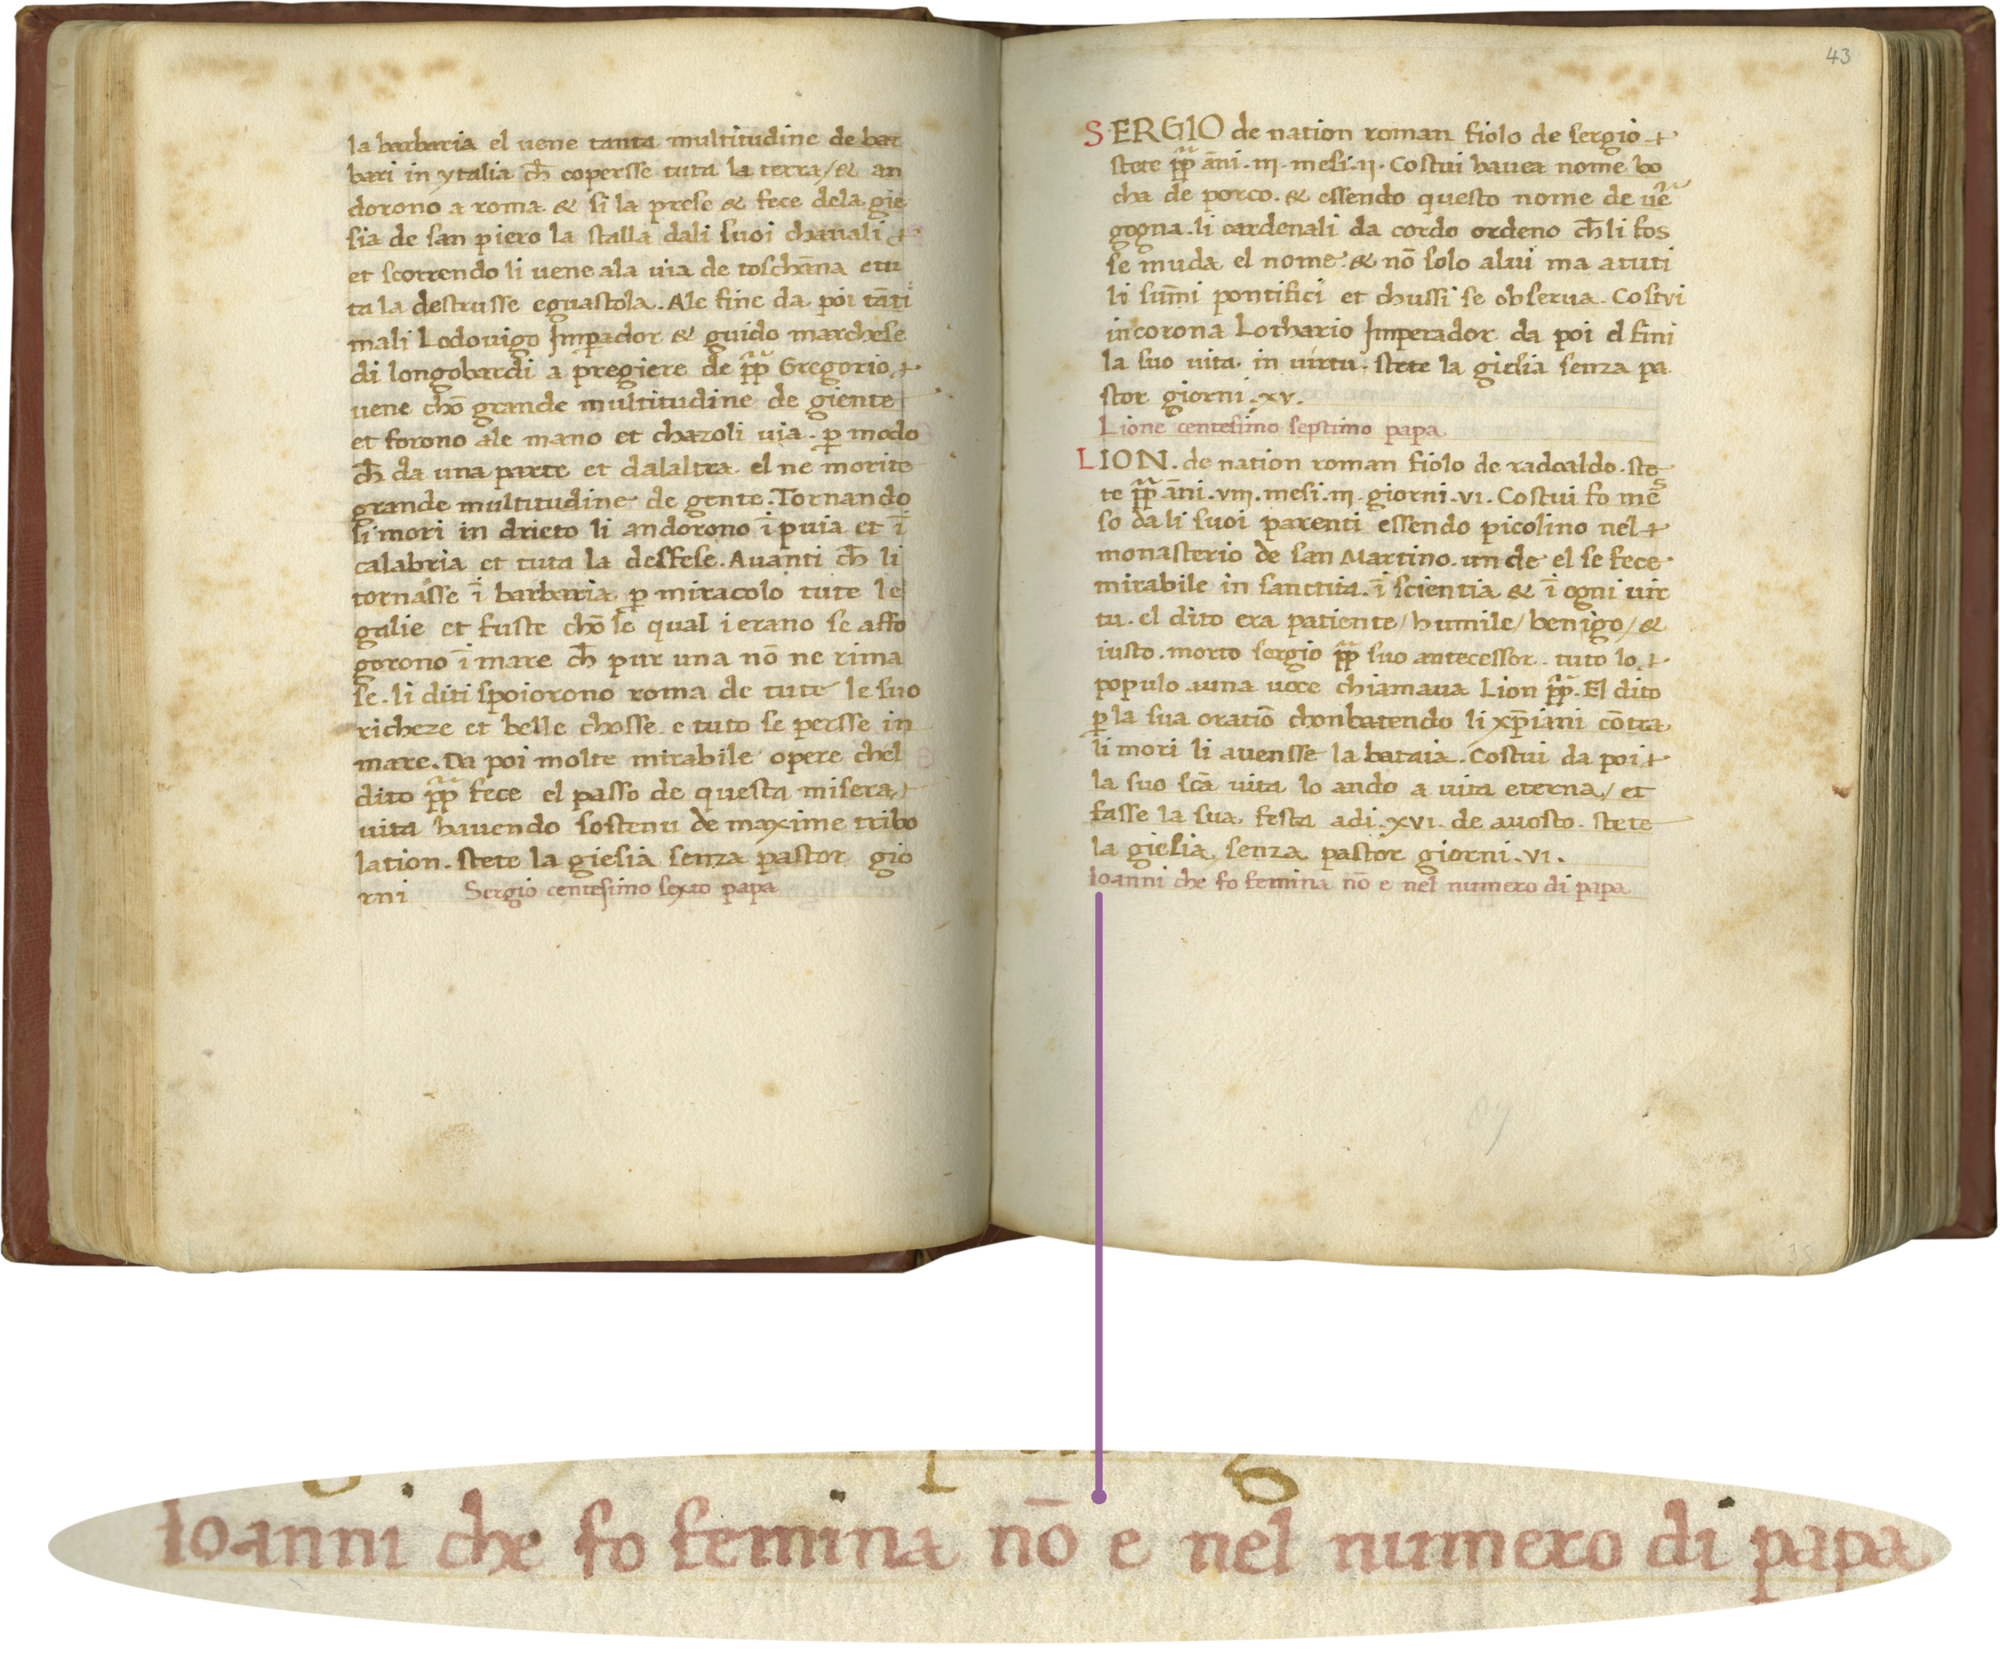 la barbaria el uene tanta multitudine de bar
bari in ytalia ch̄ copersse tuta la terra/ & an
dorono a roma & si la prese & fece dela gie
sia de san piero la stalla dali suoi chauali
et scorrendo li uene ala uia de toschāna etu
ta la destrusse eguastola. Ale fine da poi tāti
mali Lodouigo Imꝑador & guido marchese
di longobardi a pregiere de pp̄ Gregorio
uene chō grande multitudine de giente
et forono ale mano et chazoli uia. ꝑ modo
ch̄ da una parte et dalaltra el ne morite
grande multitudine de gente. Tornando
li mori in drieto li andorono ī puia et ī
calabria et tuta la desfese. Auanti ch̄ li
tornasse ī barbaria ꝑ miracolo tute le
galie et fuste chō se qual i erano se affo
gorono ī mare ch̄ pur una nō ne rima
se. li diti spoiorono roma de tute le suo
richeze et belle chosse e tuto se persse in
mare. Da poi molte mirabile opere chel
dito pp̄ fece el passo de questa misera
uita hauendo sostenu de maxime tribo
lation. stete la giesia senza pastor gio
rni Sergio centesimo sexto papa
43
SERGIO de nation roman fiolo de sergio
stete pp̄ āni .III. mesi .II. Costui hauea nome bo
cha de porco. & essendo questo nome de uē
gogna. li cardenali da cordo ordeno ch̄ li fos
se muda el nome. & nō solo alui ma a tuti
li sum̄i pontifici et chussi se obserua. Costvi
incorona Lothario Imperador da poi el fini
la suo uita in uirtu. stete la giesia senza pa
stor giorni .xv.
Lione centesimo septimo papa
LION. de nation roman fiolo de radoaldo. ste
te pp̄ āni .VIII. mesi .III. giorni .VI. Costui fo mes
so da li suoi parenti essendo picolino nel
monasterio de san Martino. un de el se fece
mirabile in sanctita. ī scientia & ī ogni uir
tu. el dito era patiente/ humile/ benigo/ &
iusto. morto sergio pp̄ suo antecessor. tuto lo
populo a una uoce chiamaua Lion pp̄. El dito
ꝑ la sua oratiō chonbatendo li xp̄iani cōtra
li mori li auensse la bataia. Costui da poi
la suo scā uita lo ando a uita eterna/ et
fasse la sua festa adi .xvi. de auosto. stete
la giesia senza pastor giorni .VI.
Ioanni che fo femina nō e nel numero di papa
Ioanni che fo femina nō e nel numero di papa